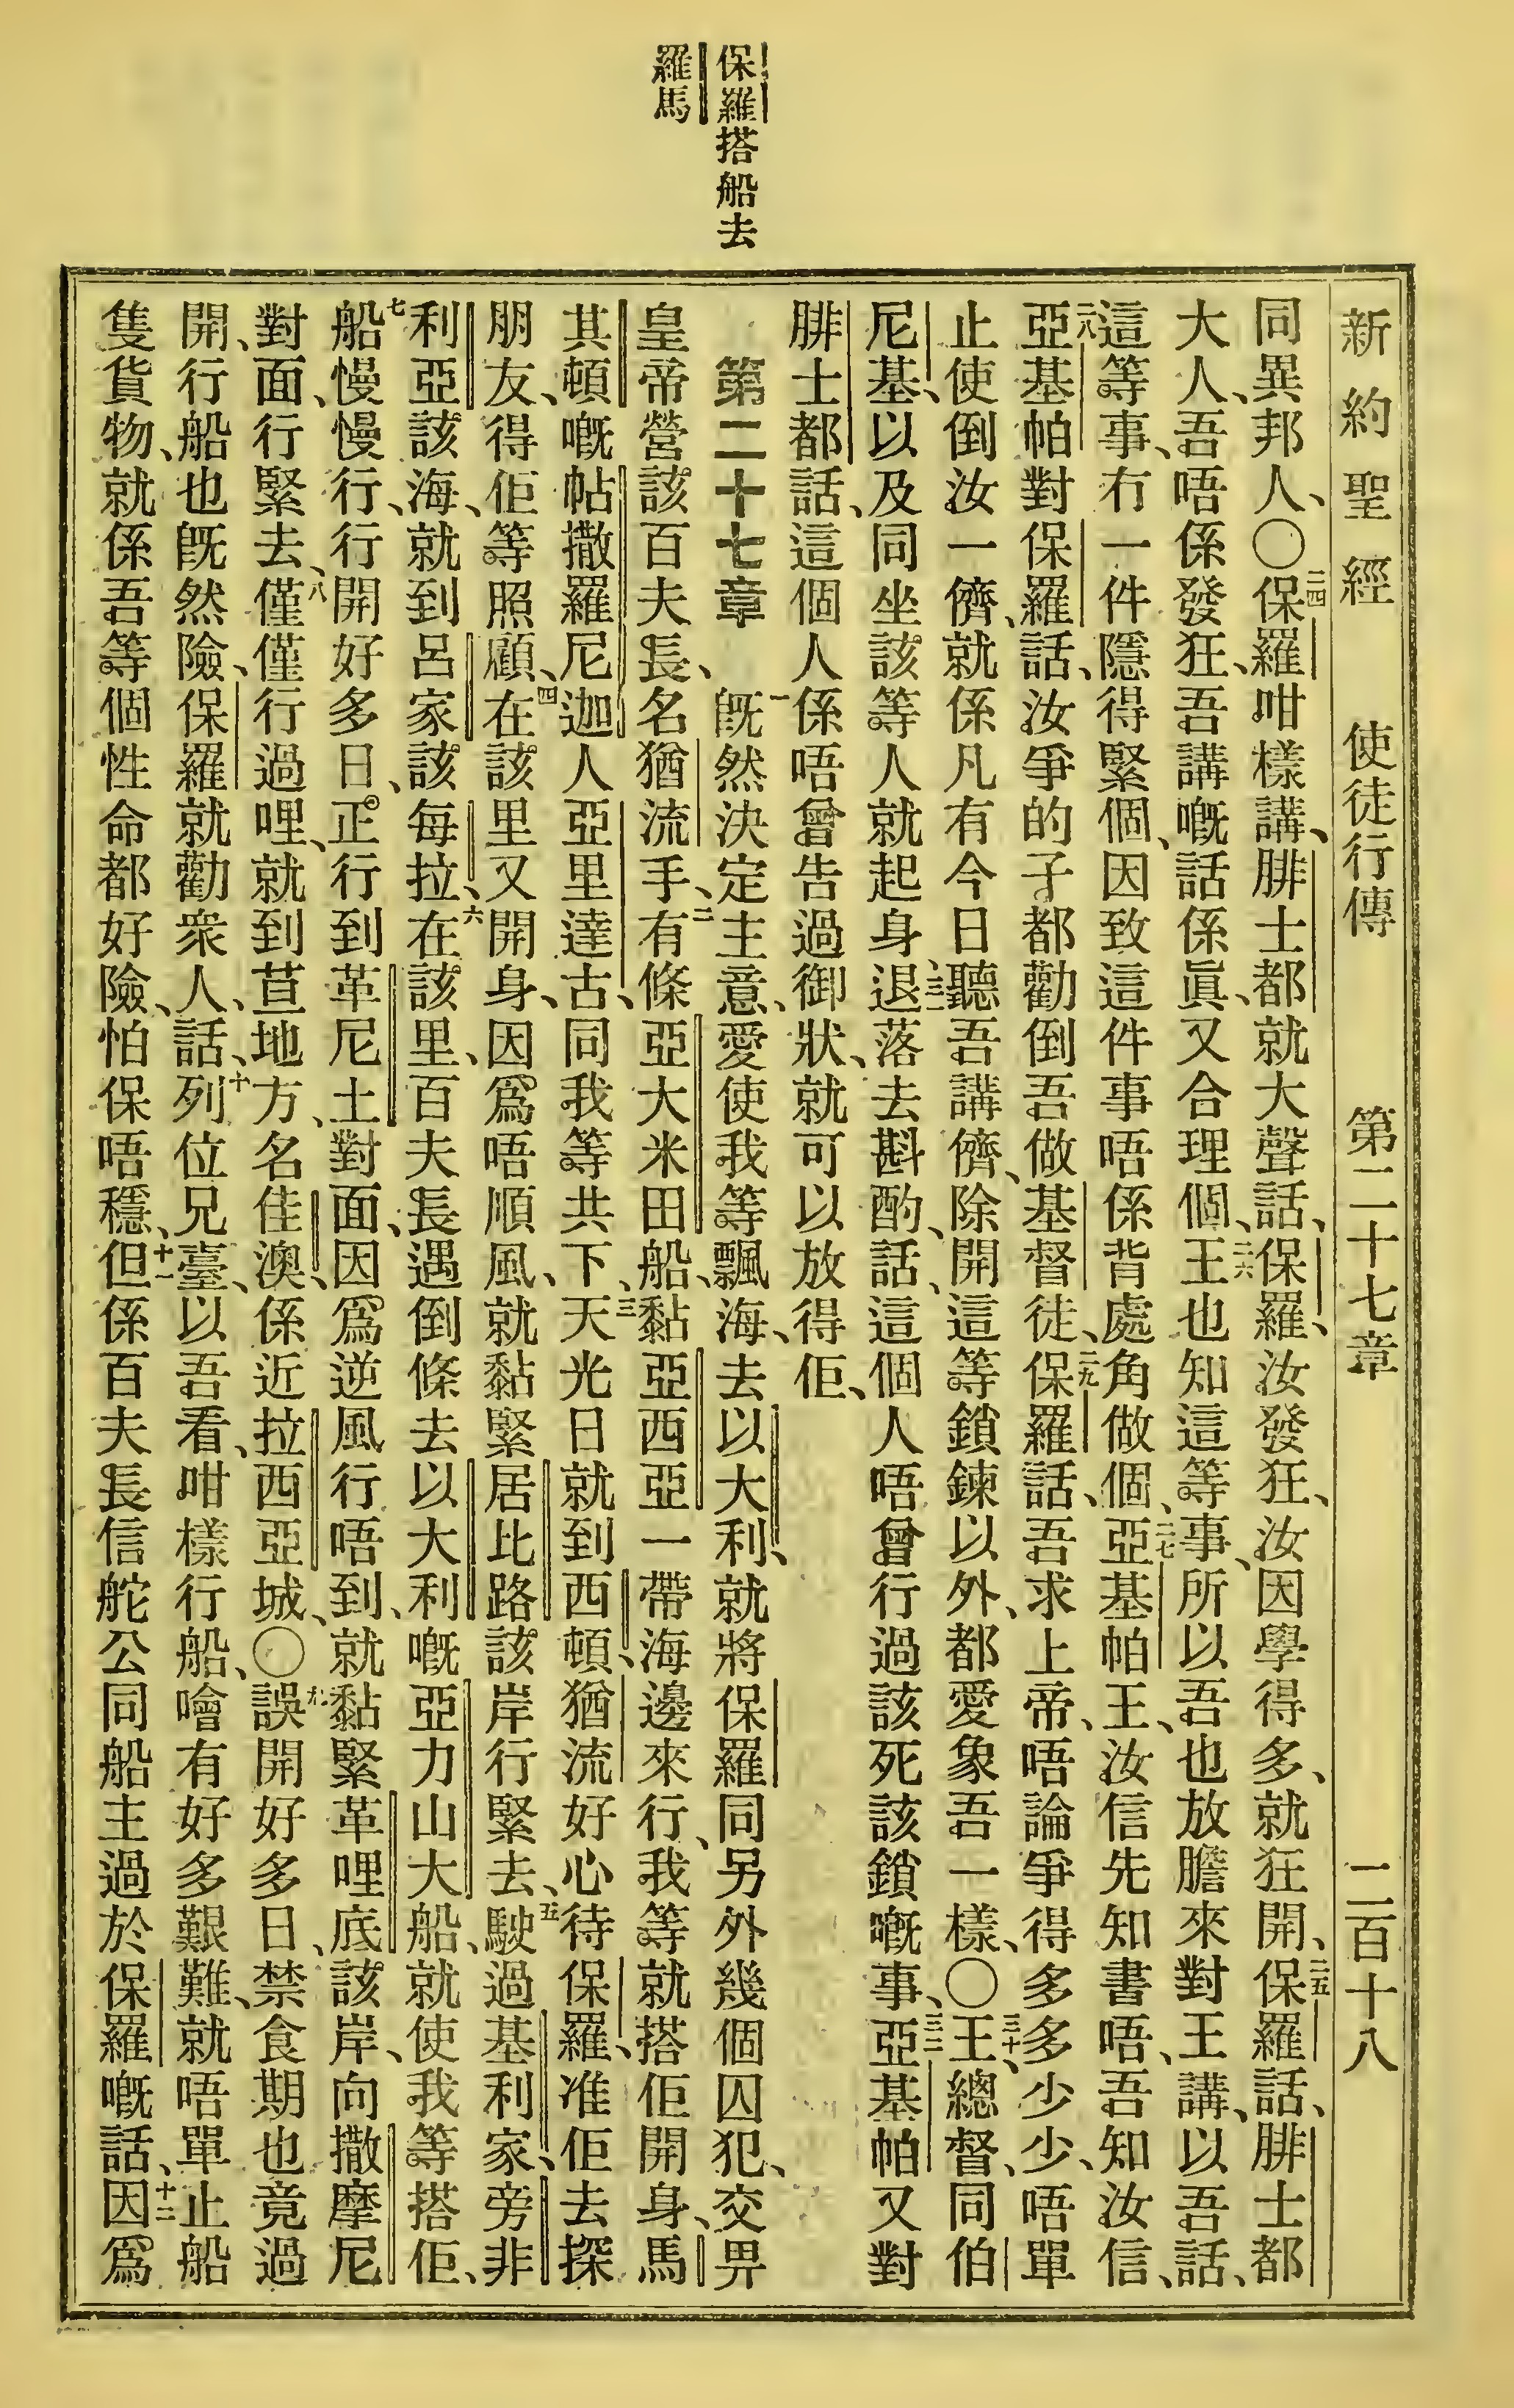 保羅搭船去
羅馬
新約聖經 使徒行傳 第二十七章 二百十八
同異邦人、〇二四保羅咁樣講、腓士都就大聲話、保羅、汝發狂、汝因學得多、就狂開、二五保羅話、腓士都
大人、吾唔係發狂、吾講嘅話係眞、又合理個、二六王也知這等事、所以吾也放膽來對王講、以吾話、
這等事、冇一件隱得緊個、因致這件事唔係背處角做個、二七亞基帕王、汝信先知書唔、吾知汝信、
二八亞基帕對保羅話、汝爭的子都勸倒吾做基督徒、二九保羅話、吾求上帝、唔論爭得多多少少、唔單
止使倒汝一儕、就係凡有今日聽吾講儕、除開這等鎖鍊以外、都愛象吾一樣、〇三十王、總督、同伯
尼基、以及同坐該等人就起身、三一退落去斟酌、話、這個人唔曾行過該死該鎖嘅事、三二亞基帕又對
腓士都話、這個人係唔曾告過御狀、就可以放得佢、
第二十七章 一既然決定主意、愛使我等飄海、去以大利、就將保羅同另外幾個囚犯、交畀
皇帝營該百夫長、名猶流手、二有條亞大米田船、黏亞西亞一帶海邊來行、我等就搭佢開身、馬
其頓嘅帖撒羅尼迦人亞里達古、同我等共下、三天光日就到西頓、猶流好心待保羅、准佢去探
朋友、得佢等照顧、四在該里又開身、因爲唔順風、就黏緊居比路該岸行緊去、五駛過基利家、旁非
利亞該海、就到呂家該每拉、六在該里、百夫長遇倒條去以大利嘅亞力山大船、就使我等搭佢、
七船慢慢行、行開好多日、正行到革尼土對面、因爲逆風行唔到、就黏緊革哩底該岸、向撒摩尼
對面、行緊去、八僅僅行過哩、就到荁地方、名佳澳、係近拉西亞城、〇九誤開好多日、禁食期也竟過
開、行船也既然險、保羅就勸衆人、話、十列位兄臺、以吾看、咁樣行船、噲有好多艱難、就唔單止船
隻貨物、就係吾等個性命都好險、怕保唔穩、十一但係百夫長信舵公同船主過於保羅嘅話、十二因爲